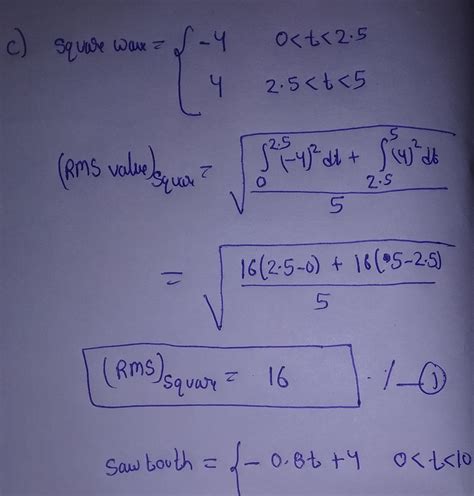 c) Square wave = { -4    0<t<2.5
4    2.5<t<5
(RMS value)Square = √( ( ∫₀^2.5 (-4)² dt + ∫2.5^5 (4)² dt ) / 5 )
= √( ( 16(2.5-0) + 16(5-2.5) ) / 5 )
(RMS)Square = 16    ./—①
Sawtooth = { -0.8t+4    0<t<10